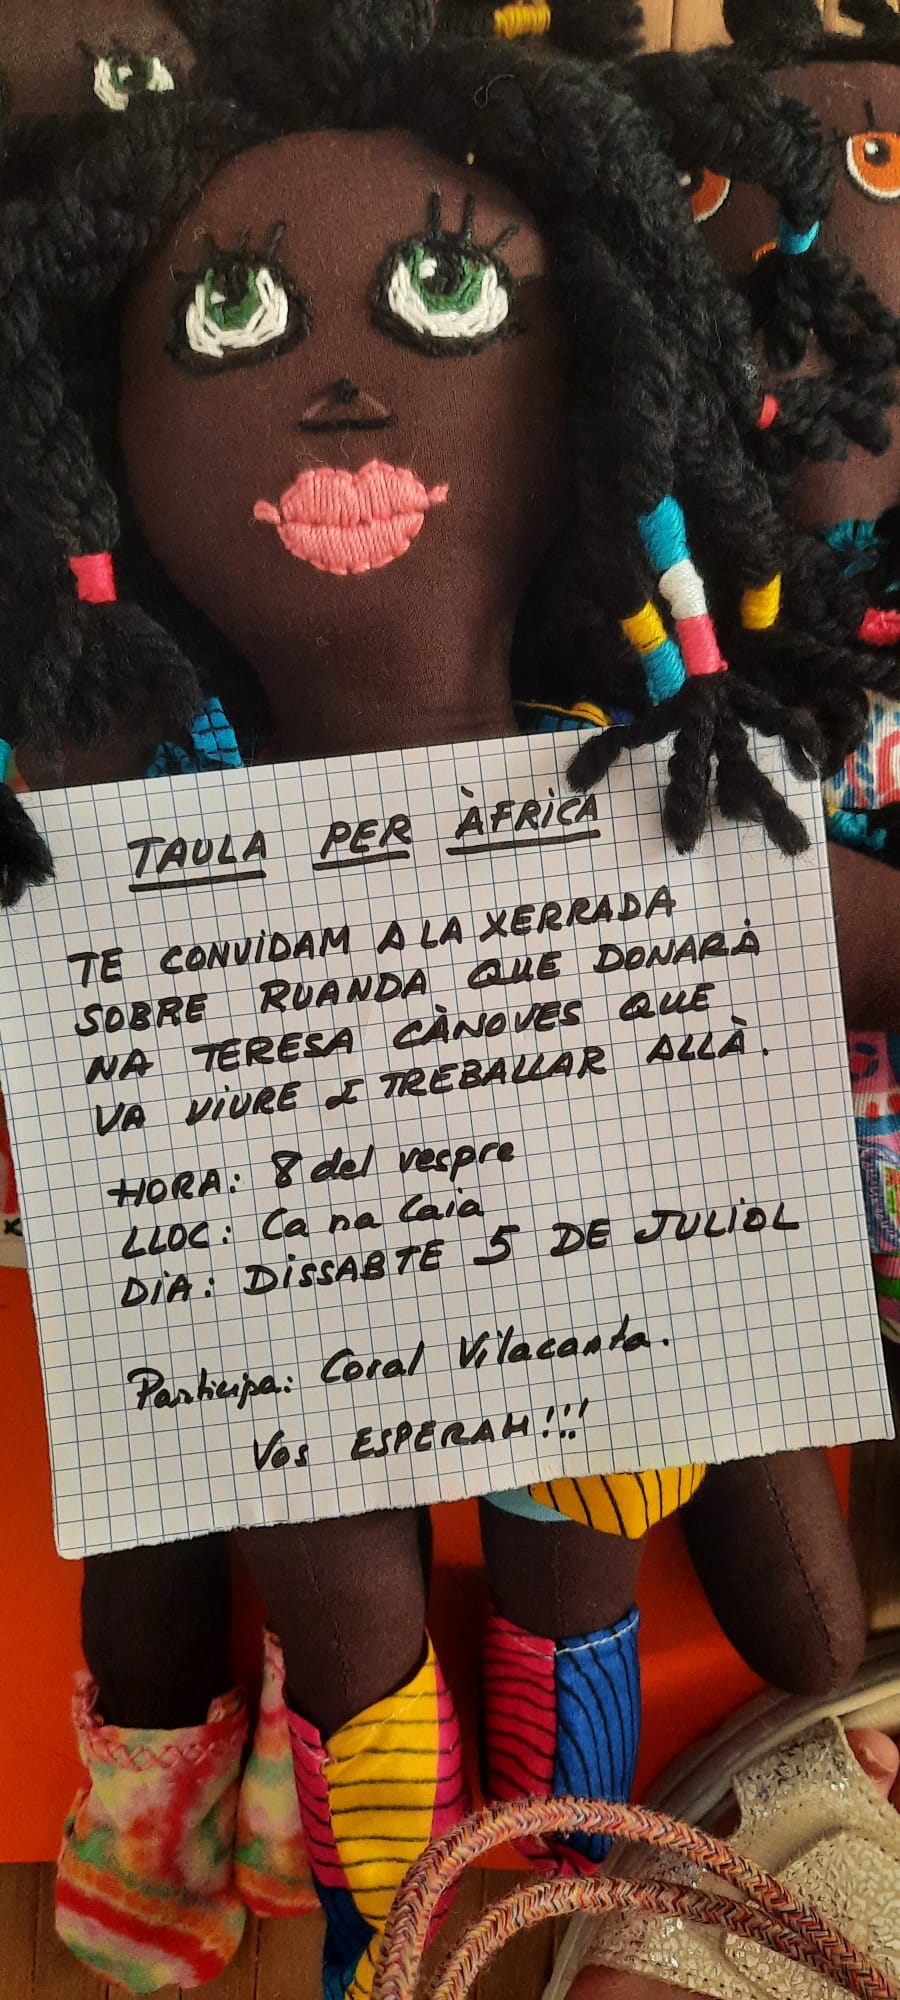 TAULA PER ÀFRICA
TE CONVIDAM A LA XERRADA
SOBRE RUANDA QUE DONARÀ
NA TERESA CÀNOVES QUE
VA VIURE I TREBALLAR ALLÀ.
HORA: 8 del vespre
LLOC: Ca na Caia
DIA: DISSABTE 5 DE JULIOL
Participa: Coral Vilacanta.
Vos ESPERAM!!!